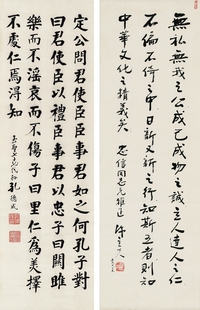 無私無我之公成己成物之誠立人達人之仁
不偏不倚之中日新又新之行知斯五者則知
中華文化之精義矣 忠信同志 雅正 陳立夫
定公問君使臣臣事君如之何孔子對
曰君使臣以禮臣事君以忠子曰關雎
樂而不淫哀而不傷子曰里仁為美擇
不處仁焉得知
孔德成